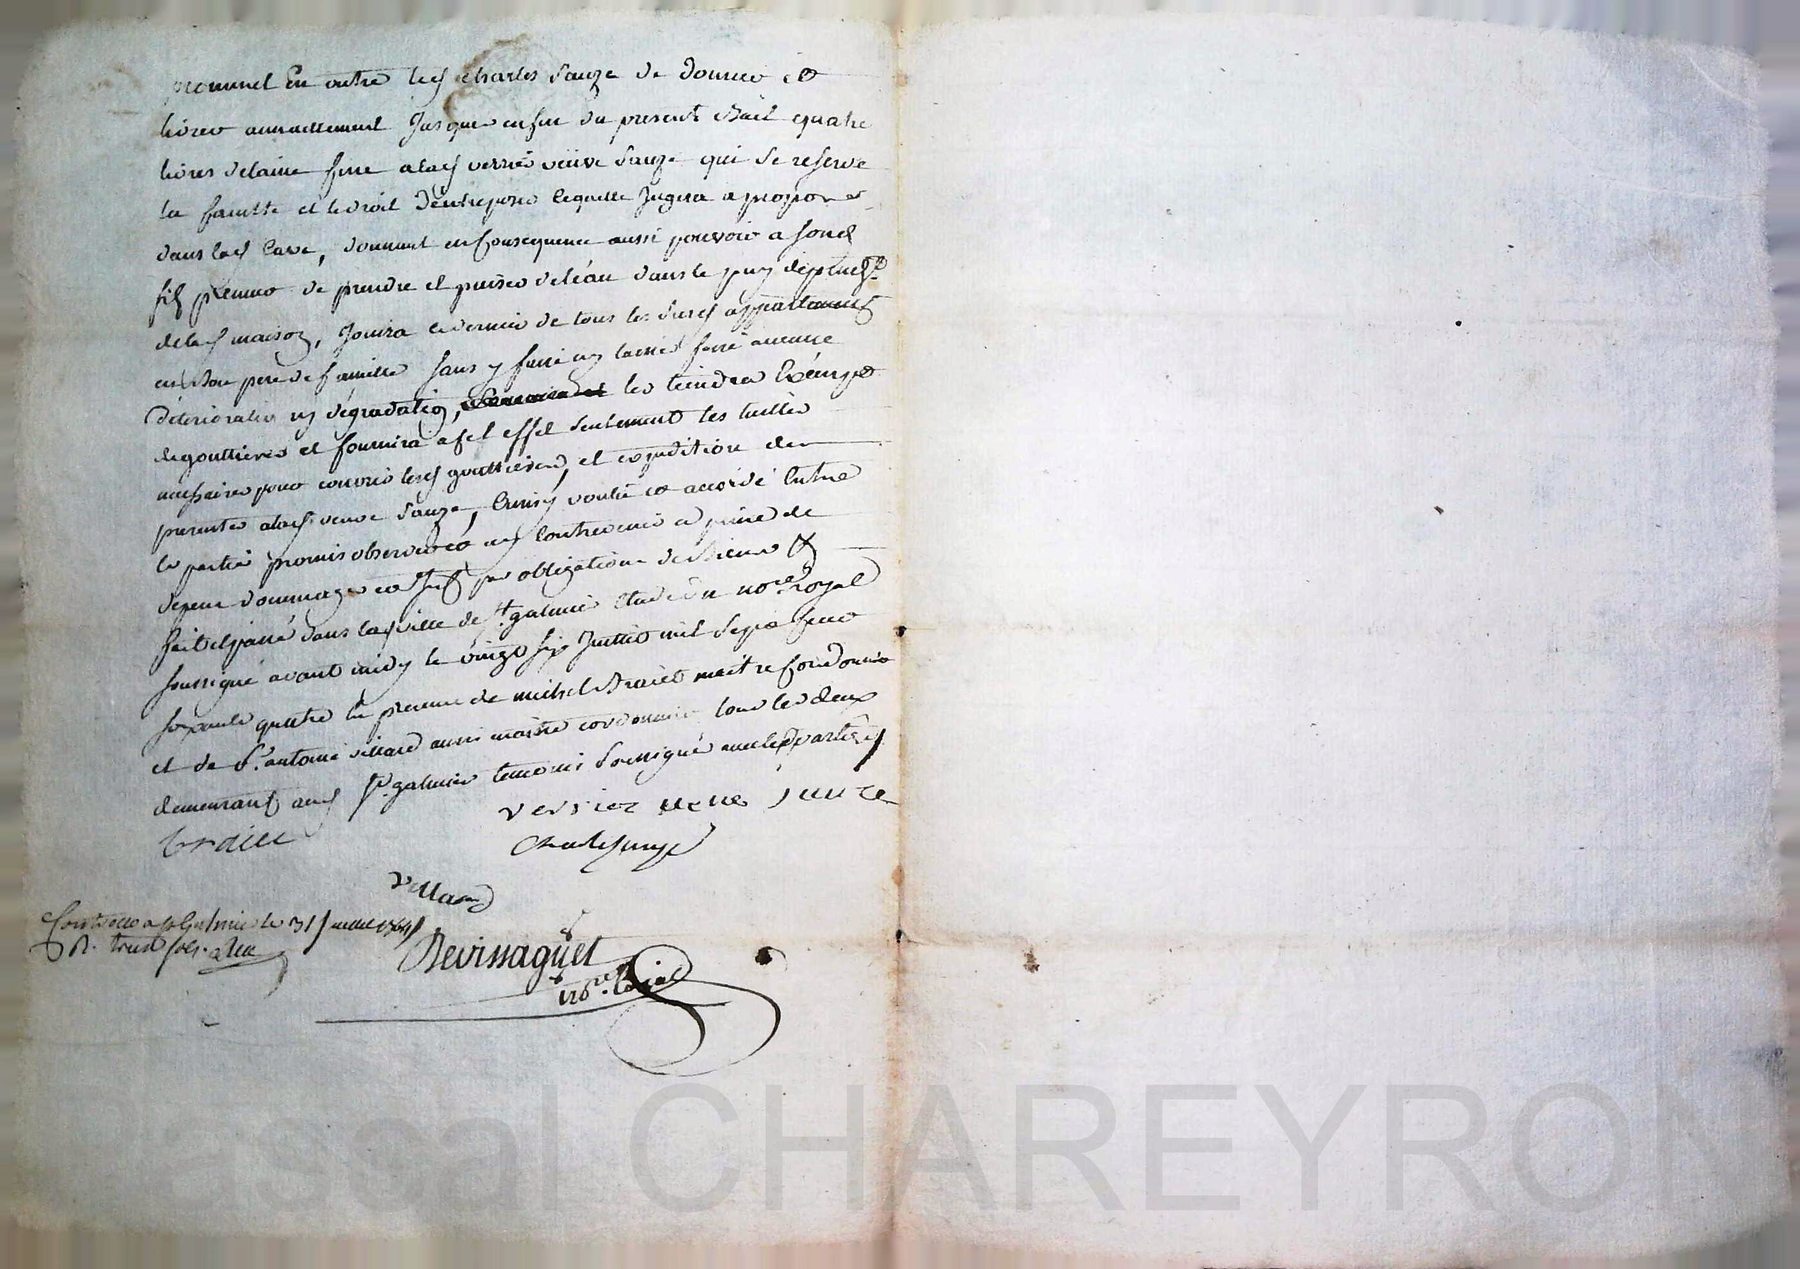 prommet En outre led Charles Sauze de donner et
livrer annuellement Jusques enfin du present Bail quatre
livres delaine fine alad verrier veüve Sauze qui se reserve
la faculté et ledroit d'entreposer lequelle Jugera apropos
dans lad Cave, donnant enConsequence aussi pouvoir a sond
fils preneur de prendre et puiser deléau dans le puy
delad maison, Jouira cedernier de tous les susd appartements
en Bon pere de famille sans y faire ny laisser faire aucune
déterioration ny dégradation, les tiendra Exempt
degouttieres et fournira a cet effet seulement les tuilles
necessaires pour couvrir lesd gouttieres, et expedition des
presentes alad veuve Sauze, Ainsy voulu et accordé Entre
les parties promis observer et ny Contrevenir a peine de
depens dommages et par obligations de Biens
fait et passé dans lad ville de St galmier étude du nore royal
soussigné avant midy le vingt six Juillet mil sept cent
soixante quatre en presence de michel Brait maitre Cordonnier
et de Sr antoine villard aussi maitre cordonnier tous les deux
demeurant aud St galmier temoins soussignés avec les parties
verrier veuve sauze
brait
Charle sauze
villard
Controllé a St Galmier le 31 Juillet 1764
R. treize sols
Devissaguet
nore Royal
Pascal CHAREYRON